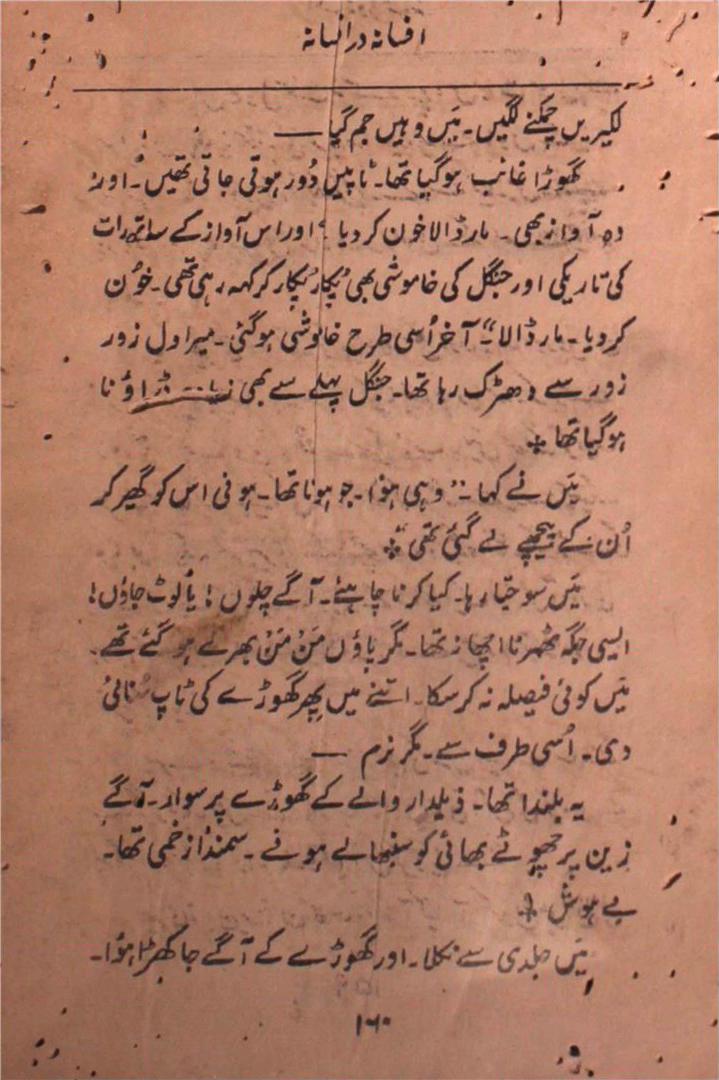 افسانہ در افسانہ
لکیریں چمکنے لگیں۔ میَں وہیں جم گیا ——
گھوڑا غائب ہوگیا تھا۔ ٹاپیں دُور ہوتی جاتی تھیں۔ اور
وہ آواز بھی۔ مار ڈالا خون کر دیا ؟ اور اس آواز کے ساتھ رات
کی تاریکی اور جنگل کی خاموشی بھی پُکار پُکار کر کہہ رہی تھی۔ خوُن
کر دیا۔ مار ڈالا"۔ آخر اُسی طرح خاموشی ہوگئی۔ میرا دل زور
زور سے دھڑک رہا تھا۔ جنگل پہلے سے بھی ڈراؤنا
ہوگیا تھا ٭
میَں نے کہا۔ "وہی ہؤا۔ جو ہونا تھا۔ ہونی اس کو گھیر کر
اُن کے پیچھے لے گئی تھی" ٭
میَں سوچتا رہا۔ کیا کرنا چاہئے۔ آگے چلوں ! یا لوٹ جاؤں!
ایسی جگہ ٹھہرنا اچھا نہ تھا۔ مگر پاؤں مَنْ مَنْ بھر کے ہو گئے تھے۔
میَں کوئی فیصلہ نہ کر سکا۔ اتنے میں پھر گھوڑے کی ٹاپ سُنائی
دی۔ اُسی طرف سے۔ مگر نرم ——
یہ بلندا تھا۔ ذیلدار والے کے گھوڑے پر سوار۔ آگے
زین پر چھوٹے بھائی کو سنبھالے ہوئے۔ سمندا زخمی تھا۔
بے ہوش ٭
میَں جلدی سے نکلا۔ اور گھوڑے کے آگے جا کھڑا ہؤا۔
۱۶۰